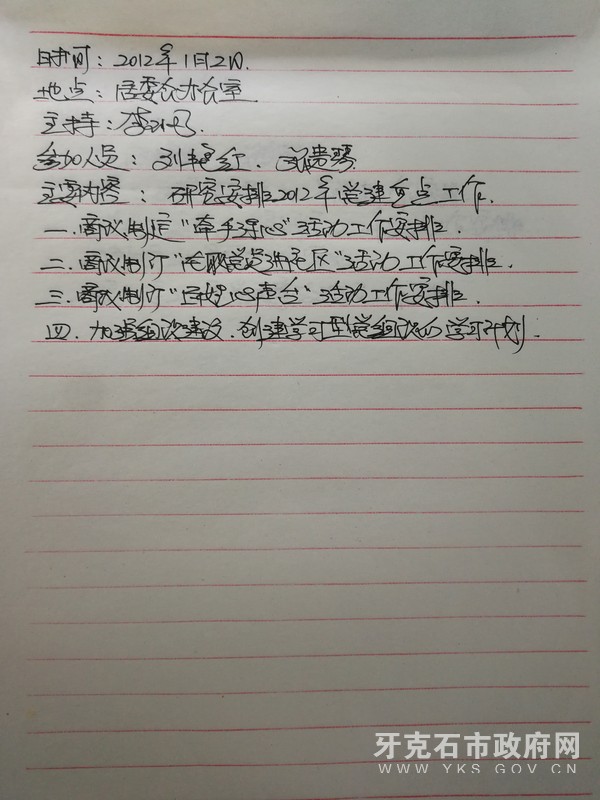 时间：2012年1月2日.
地点：居委会办公室
主持：李
参加人员：刘艳红.
主要内容：研究安排2012年党建重点工作.
一.商议制定“牵手 心”活动工作安排.
二.商议制订“在职党员进社区”活动工作安排.
三.商议制订“ 心声台”活动工作安排.
四.加强组织建设.创建学习型党组织的学习计划.
牙克石市政府网
WWW.YKS.GOV.CN